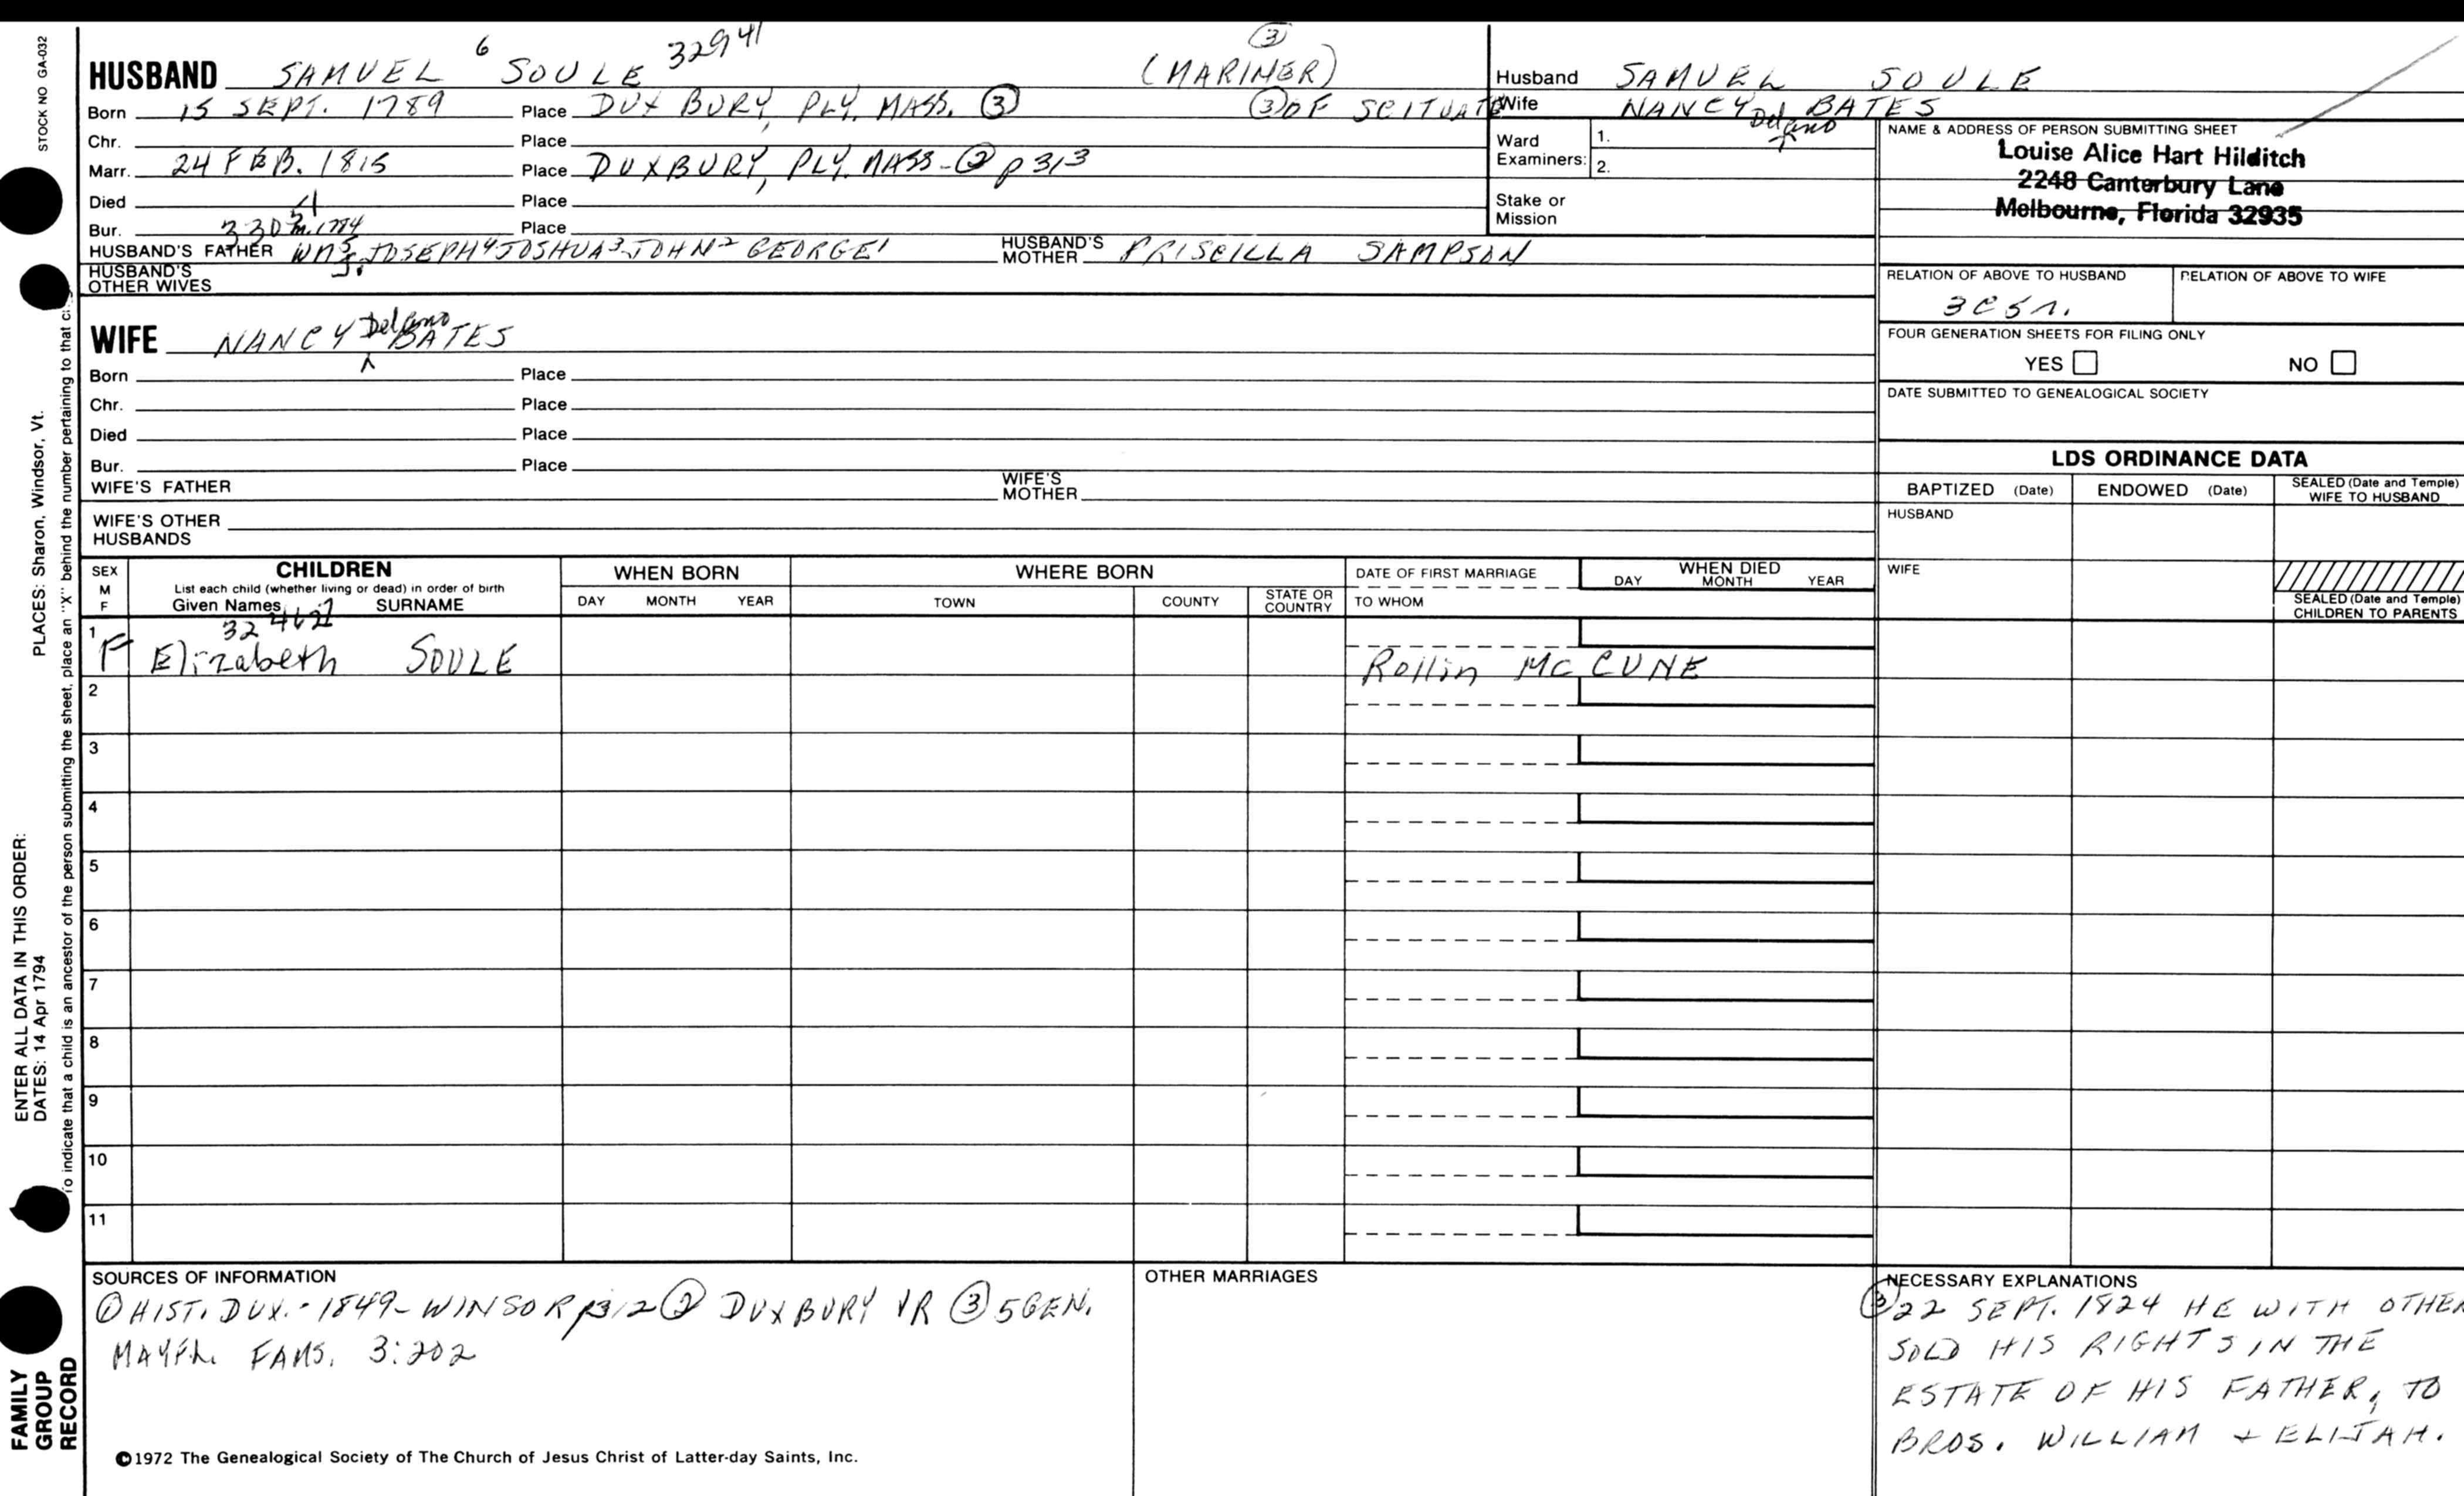 STOCK NO GA-032
HUSBAND SAMUEL 6 SOULE 32941 (MARINER) ③
Born 15 SEPT. 1789 Place DUXBURY, PLY. MASS. ③ ③ OF SCITUATE
Chr. Place
Marr. 24 FEB. 1815 Place DUXBURY, PLY. MASS - ② p 313
Died Place
Bur. Place
HUSBAND'S FATHER WM5 JOSEPH4 JOSHUA3 JOHN2 GEORGE1 HUSBAND'S MOTHER PRISCILLA SAMPSON
HUSBAND'S OTHER WIVES
Husband SAMUEL SOULE
Wife NANCY Delano BATES
Ward Examiners: 1.
2.
Stake or Mission
NAME & ADDRESS OF PERSON SUBMITTING SHEET
Louise Alice Hart Hilditch
2248 Canterbury Lane
Melbourne, Florida 32935
RELATION OF ABOVE TO HUSBAND RELATION OF ABOVE TO WIFE
3C5r.
FOUR GENERATION SHEETS FOR FILING ONLY
YES NO
DATE SUBMITTED TO GENEALOGICAL SOCIETY
WIFE NANCY Delano BATES
Born Place
Chr. Place
Died Place
Bur. Place
WIFE'S FATHER WIFE'S MOTHER
WIFE'S OTHER HUSBANDS
LDS ORDINANCE DATA
BAPTIZED (Date) ENDOWED (Date) SEALED (Date and Temple) WIFE TO HUSBAND
HUSBAND
WIFE
SEALED (Date and Temple) CHILDREN TO PARENTS
SEX M F
CHILDREN
List each child (whether living or dead) in order of birth
Given Names SURNAME
WHEN BORN
DAY MONTH YEAR
WHERE BORN
TOWN COUNTY STATE OR COUNTRY
DATE OF FIRST MARRIAGE
TO WHOM
WHEN DIED
DAY MONTH YEAR
1 F Elizabeth SOULE Rollin MC CUNE
2
3
4
5
6
7
8
9
10
11
SOURCES OF INFORMATION
① HIST. DUX. - 1849 - WINSOR p312 ② DUXBURY VR ③ 5 GEN.
MAYFL. FAMS. 3:202
OTHER MARRIAGES
NECESSARY EXPLANATIONS
③ 22 SEPT. 1824 HE WITH OTHER
SOLD HIS RIGHTS IN THE
ESTATE OF HIS FATHER, TO
BROS. WILLIAM + ELIJAH.
©1972 The Genealogical Society of The Church of Jesus Christ of Latter-day Saints, Inc.
PLACES: Sharon, Windsor, Vt.
ENTER ALL DATA IN THIS ORDER:
DATES: 14 Apr 1794
To indicate that a child is an ancestor of the person submitting the sheet, place an "X" behind the number pertaining to that
FAMILY
GROUP
RECORD